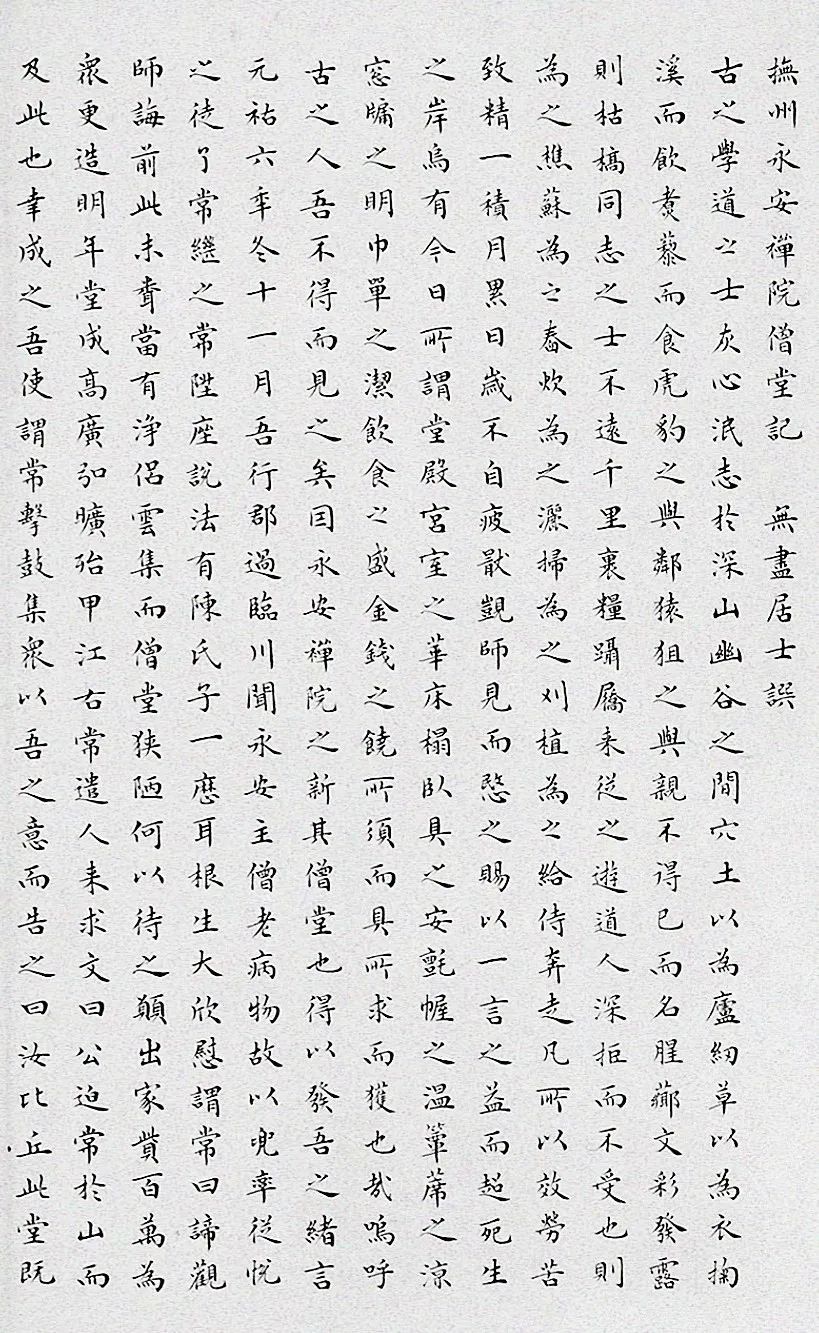 撫州永安禪院僧堂記　無盡居士譔
古之學道之士灰心泯志於深山幽谷之間穴土以為廬紉草以為衣掬
溪而飲煑藜而食虎豹之與鄰猿狙之與親不得已而名腥薌文彩發露
則枯槁同志之士不遠千里裹糧躡屩来從之遊道人深拒而不受也則
為之樵蘇為之舂炊為之灑掃為之刈植為之給侍奔走凡所以效勞苦
致精一積月累日歲不自疲猒覬師見而愍之賜以一言之益而超死生
之岸烏有今日所謂堂殿宮室之華床榻臥具之安氈幄之溫簟蓆之涼
窓牖之明巾單之潔飲食之盛金錢之饒所須而具所求而獲也哉嗚呼
古之人吾不得而見之矣因永安禪院之新其僧堂也得以發吾之緒言
元祐六年冬十一月吾行郡過臨川聞永安主僧老病物故以兜率從悅
之徒了常繼之常陞座說法有陳氏子一歷耳根生大欣慰謂常曰諦觀
師誨前此未聞當有淨侶雲集而僧堂狹陋何以待之願出家貲百萬為
眾更造明年堂成高廣弘曠殆甲江右常遣人来求文曰公迫常於山而
及此也幸成之吾使謂常擊鼓集眾以吾之意而告之曰汝比丘此堂既